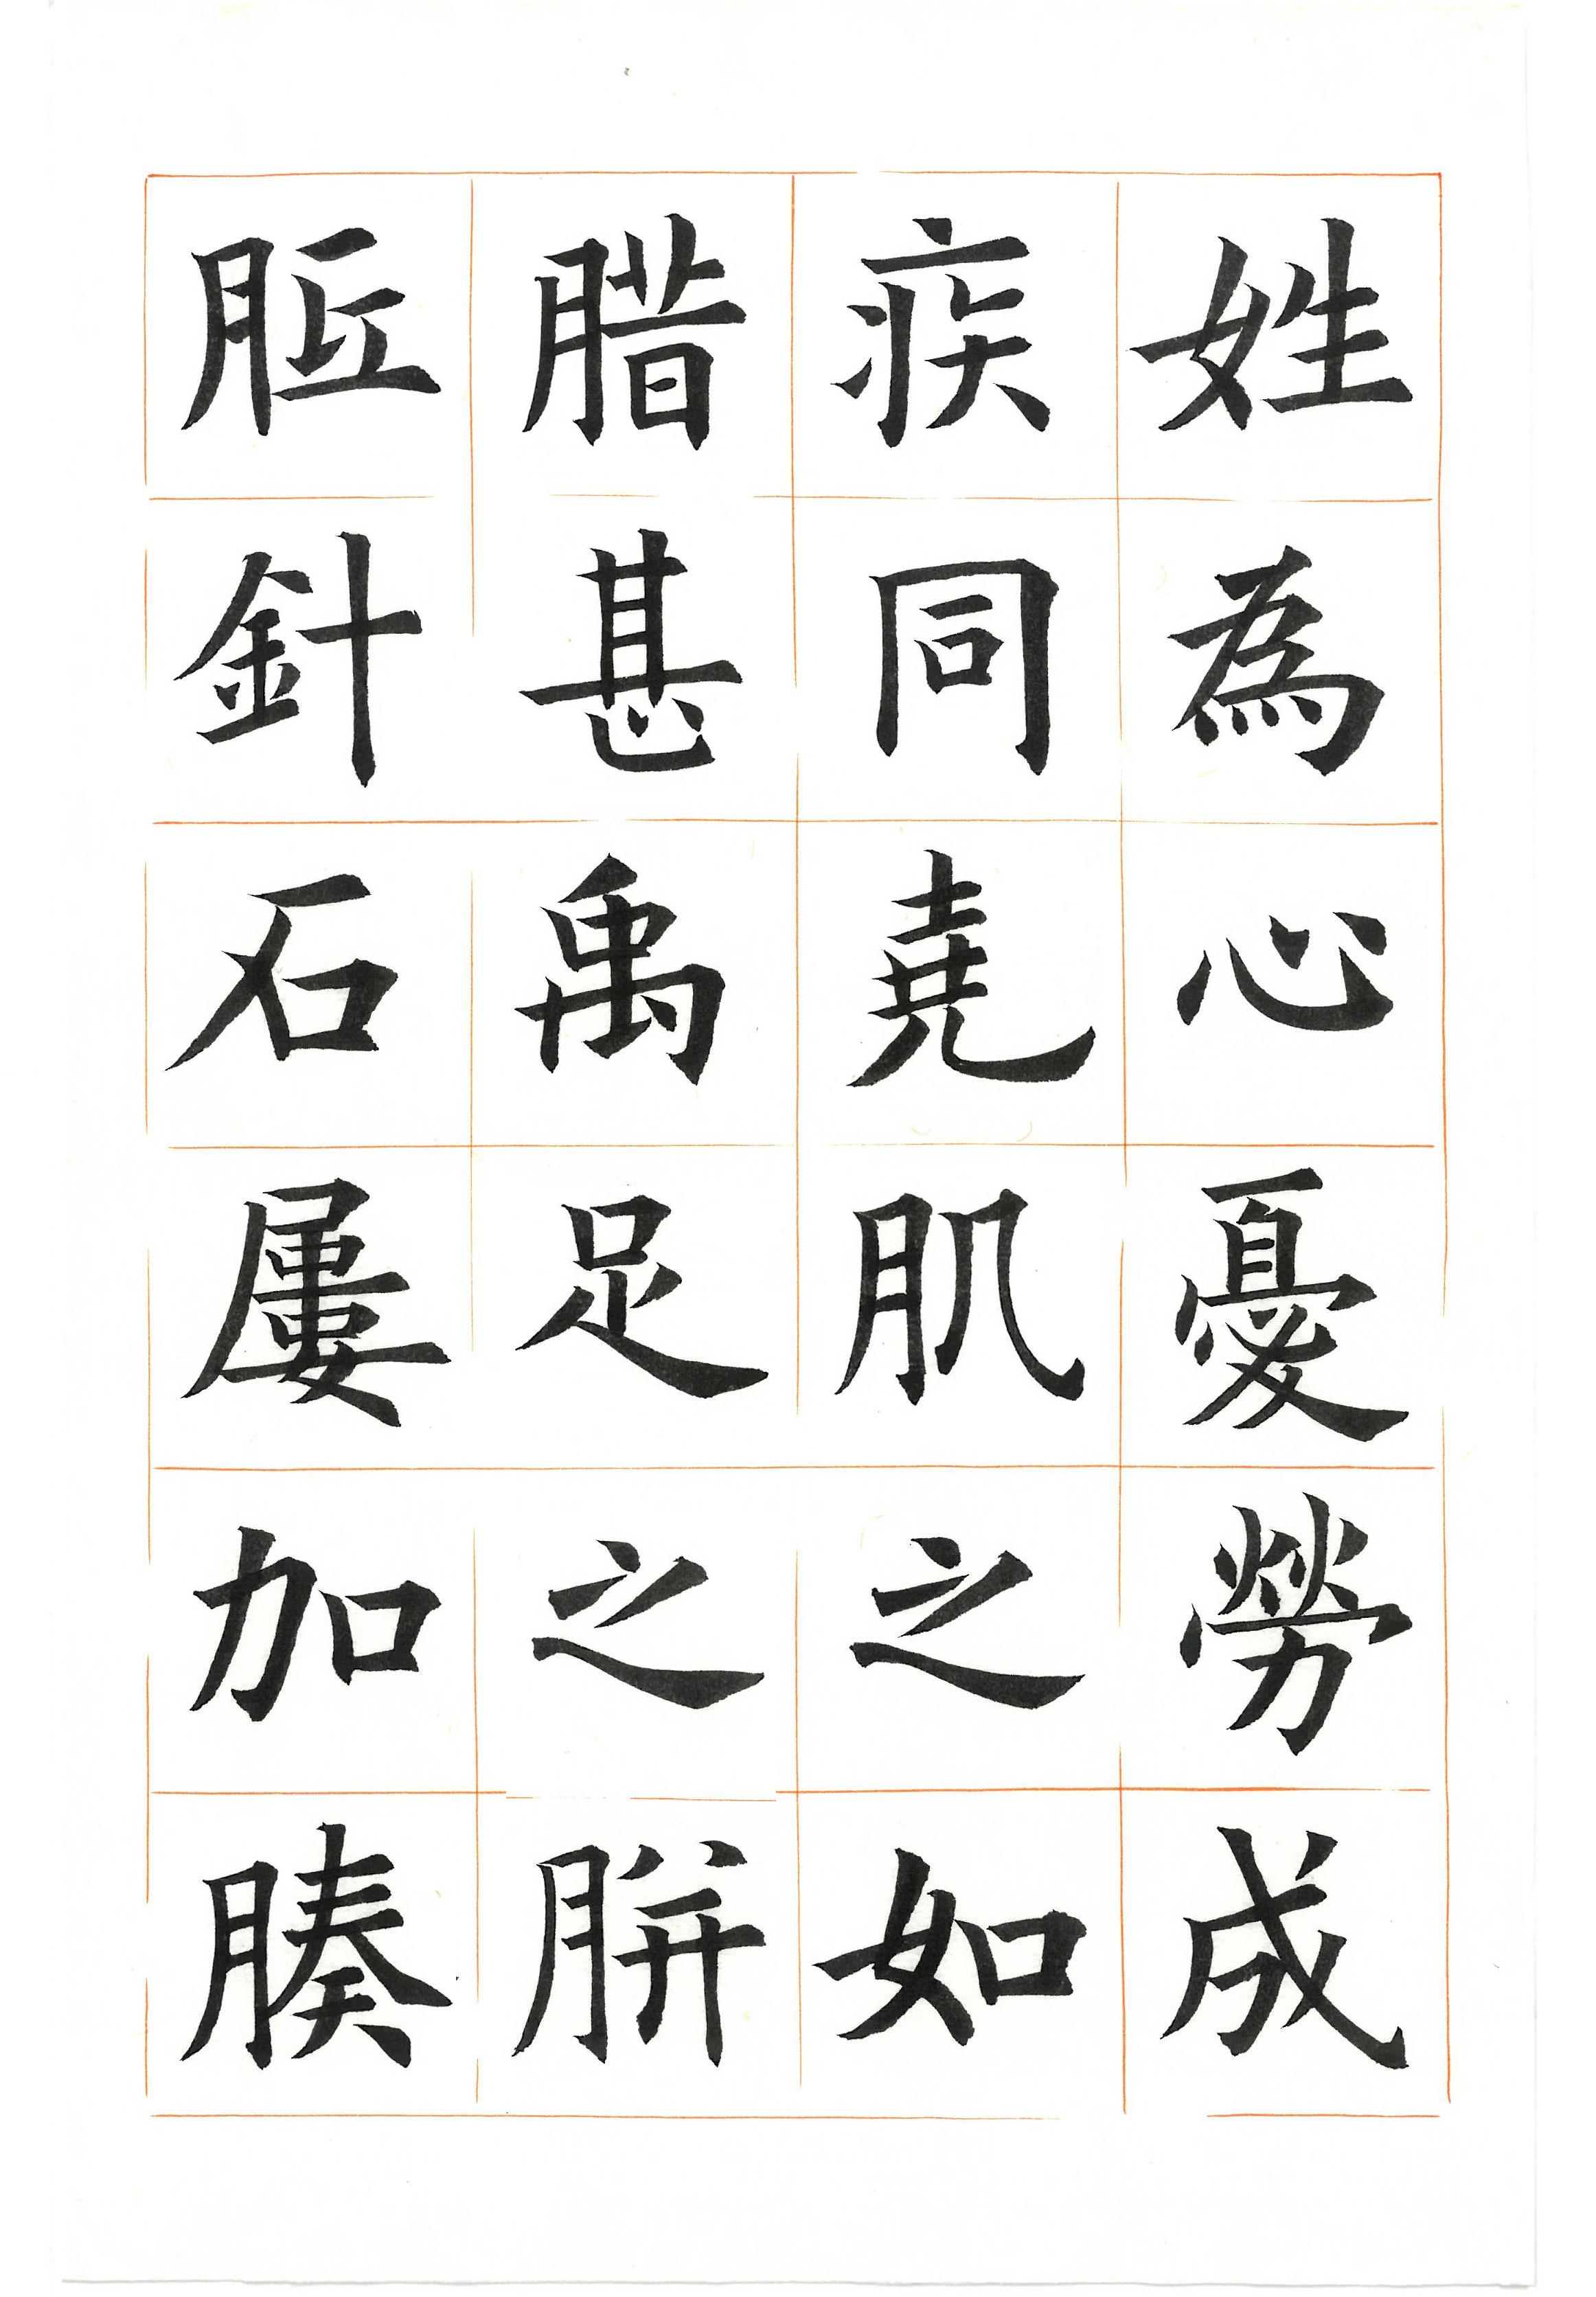 姓為心憂勞成
疾同堯肌之如
腊甚禹足之胼
胝針石屢加腠